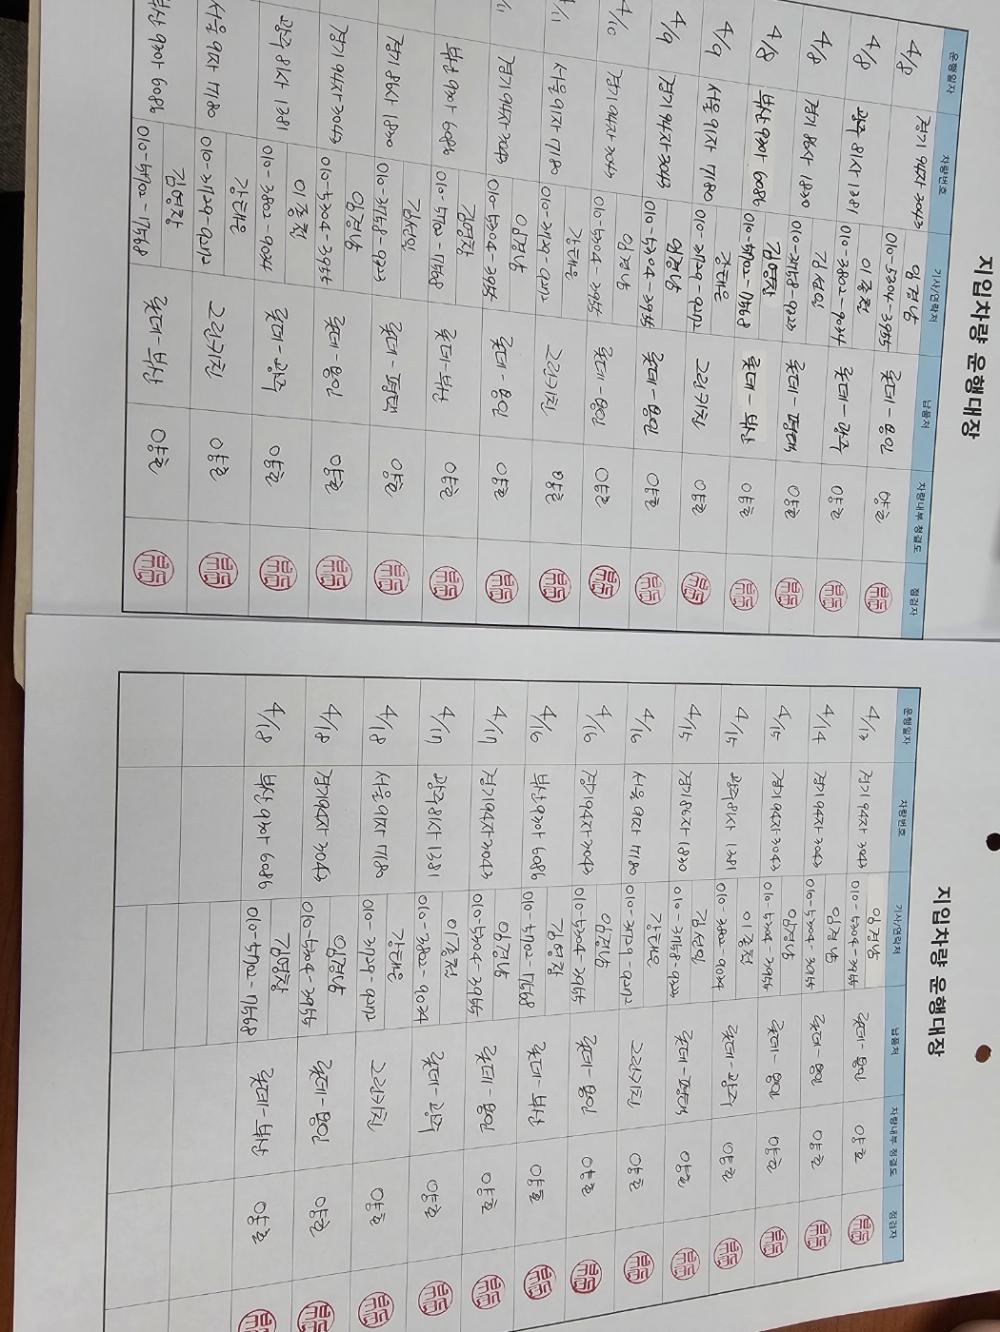 지입차량 운행대장
운행일자 차량번호 기사/연락처 납품처 차량내부 청결도 점검자
4/8 경기94자3043 임경남 010-5304-3955 롯데-용인 양호
4/8 광주81사1381 이종진 010-3802-9034 롯데-광주 양호
4/8 경기86사1830 010-3758-9223 롯데-평택 양호
4/8 부산90아6086 김영창 010-5702-7568 롯데-부산 양호
4/9 서울91자7180 강태운 010-3729-9272 그린키친 양호
4/9 경기94자3043 임경남 010-5304-3955 롯데-용인 양호
4/10 경기94자3043 임경남 010-5304-3955 롯데-용인 양호
서울91자7180 강태운 010-3729-9272 그린키친 양호
경기94자3043 임경남 010-5304-3955 롯데-용인 양호
부산90아6086 김영창 010-5702-7568 롯데-부산 양호
경기86사1830 010-3758-9223 롯데-평택 양호
경기94자3043 임경남 010-5304-3955 롯데-용인 양호
광주81사1381 이종진 010-3802-9034 롯데-광주 양호
서울91자7180 강태운 010-3729-9272 그린키친 양호
부산90아6086 김영창 010-5702-7568 롯데-부산 양호
지입차량 운행대장
운행일자 차량번호 기사/연락처 납품처 차량내부 청결도 점검자
4/13 경기94자3043 임경남 010-5304-3955 롯데-용인 양호
4/14 경기94자3043 임경남 010-5304-3955 롯데-용인 양호
4/15 경기94자3043 임경남 010-5304-3955 롯데-용인 양호
4/15 광주81사1381 이종진 010-3802-9034 롯데-광주 양호
4/15 경기86사1830 010-3758-9223 롯데-평택 양호
4/16 서울91자7180 강태운 010-3729-9272 그린키친 양호
4/16 경기94자3043 임경남 010-5304-3955 롯데-용인 양호
4/16 부산90아6086 김영창 010-5702-7568 롯데-부산 양호
4/17 경기94자3043 임경남 010-5304-3955 롯데-용인 양호
4/17 광주81사1381 이종진 010-3802-9034 롯데-광주 양호
4/18 서울91자7180 강태운 010-3729-9272 그린키친 양호
4/18 경기94자3043 임경남 010-5304-3955 롯데-용인 양호
4/18 부산90아6086 김영창 010-5702-7568 롯데-부산 양호